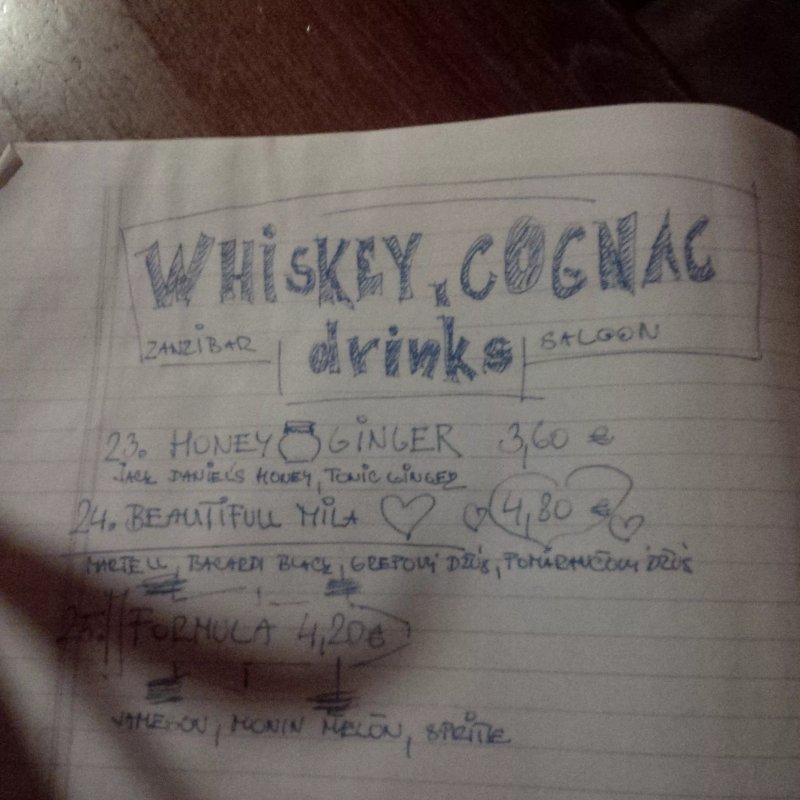 WHISKEY, COGNAC
ZANZIBAR drinks SALOON
23. HONEY GINGER 3,60 €
JACK DANIEL'S HONEY, TONIC GINGER
24. BEAUTIFULL MILA 4,80 €
MARTELL, BACARDI BLACK, GREPOVÝ DŽÚS, POMARANČOVÝ DŽÚS
25. FORMULA 4,20€
JAMESON, MONIN MELÓN, SPRITE